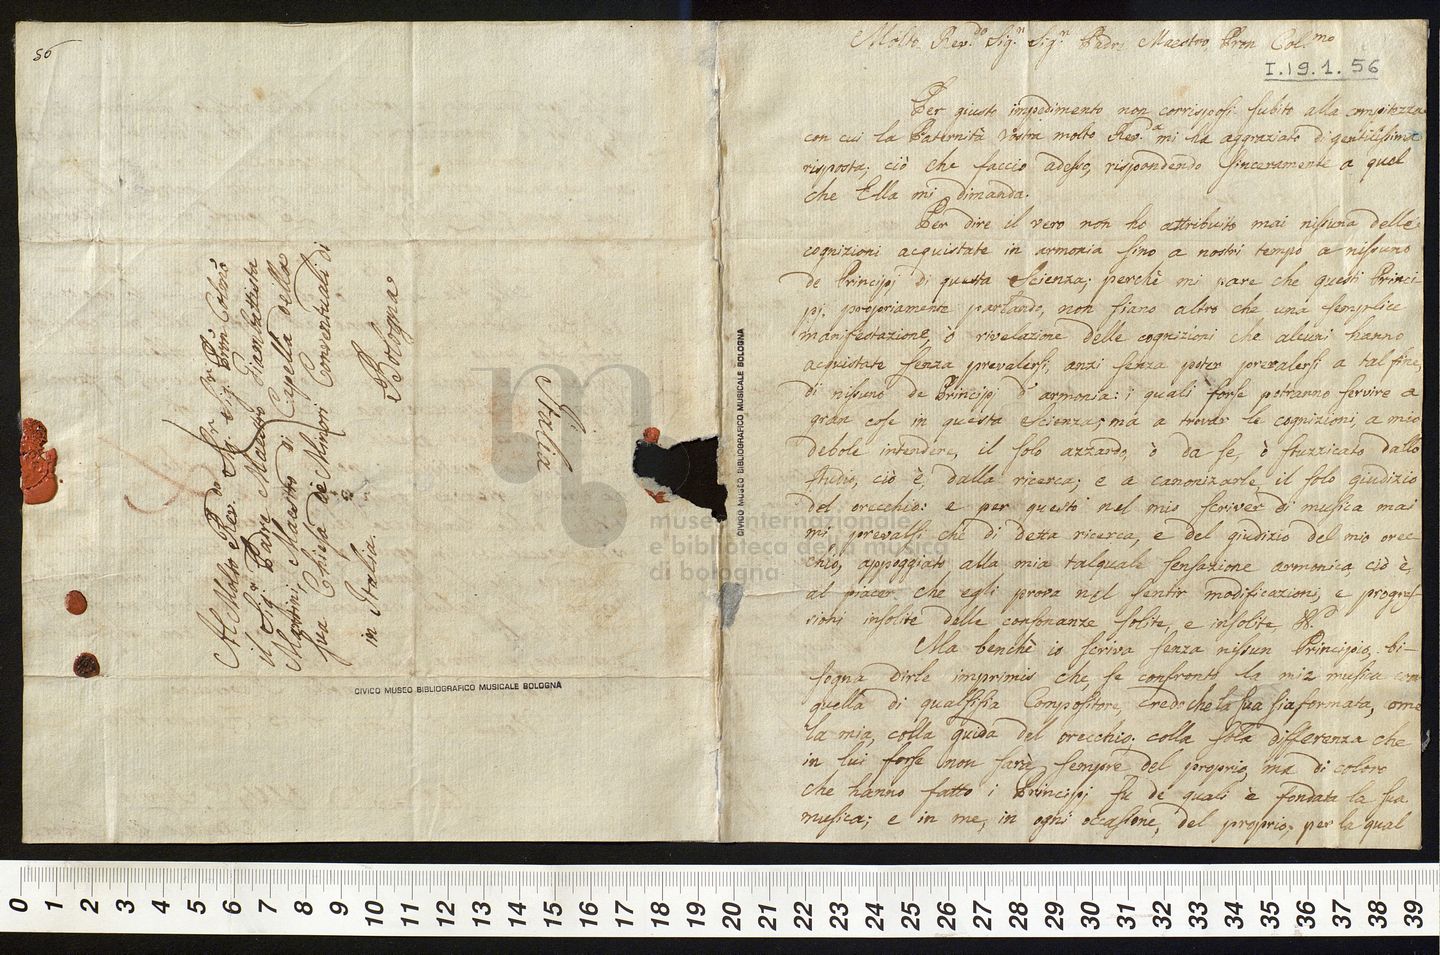 56
Al Molto Rev.do Sig.r Sig.r P.ron Col.mo
il Sig.r Padre Maestro Giambattista
Martini, Maestro di Capella della
sua Chiesa de Minori Conventuali di
in Italia. Bologna
Italia
CIVICO MUSEO BIBLIOGRAFICO MUSICALE BOLOGNA
CIVICO MUSEO BIBLIOGRAFICO MUSICALE BOLOGNA
museo internazionale
e biblioteca della musica
di bologna
Molto Rev.do Sig.r Sig.r Padre Maestro Pron Col.mo
I.19.1.56
Per giusto impedimento non corrisposi subito alla compitezza
con cui la Paternità Vostra molto Rev.da mi ha aggraziato di gentilissima
risposta; ciò che faccio adesso, rispondendo sinceramente a quel
che Ella mi dimanda.
Per dire il vero non ho attribuito mai nissuna delle
cognizioni acquistate in armonia sino a nostri tempo a nissuno
de Principj di questa Scienza; perchè mi pare che questi Princi-
pj, propriamente parlando, non siano altro che una semplice
manifestazione, ò rivelazione delle cognizioni che alcuni hanno
acquistate senza prevalersi, anzi senza poter prevalersi a tal fine,
di nissuno de Principj d'armonia: i quali forse potranno servire a
gran cose in questa Scienza; ma a trovar le cognizioni, a mio
debole intendere, il solo azzardo, ò da se, ò stuzzicato dallo
studio, ciò è, dalla ricerca; e a canonizarle il solo giudizio
del orecchio: e per questo nel mio scriver di musica mai
mi prevalsi che di detta ricerca, e del giudizio del mio orec-
chio, appoggiato alla mia talquale sensazione armonica, ciò è,
al piacer che egli prova nel sentir modificazioni, e progres-
sioni insolite delle consonanze solite, e insolite, &c.a
Ma benchè io scriva senza nissun Principio, bi-
sogna dirle imprimis che, se confronto la mia musica con
quella di qualsisia Compositore, credo che la sua sia formata, come
la mia, colla guida del orecchio; colla sola differenza che
in lui forse non sarà sempre del proprio, ma di coloro
che hanno fatto i Principj su de quali è fondata la sua
musica; e in me, in ogni occasione, del proprio: per la qual
0 1 2 3 4 5 6 7 8 9 10 11 12 13 14 15 16 17 18 19 20 21 22 23 24 25 26 27 28 29 30 31 32 33 34 35 36 37 38 39